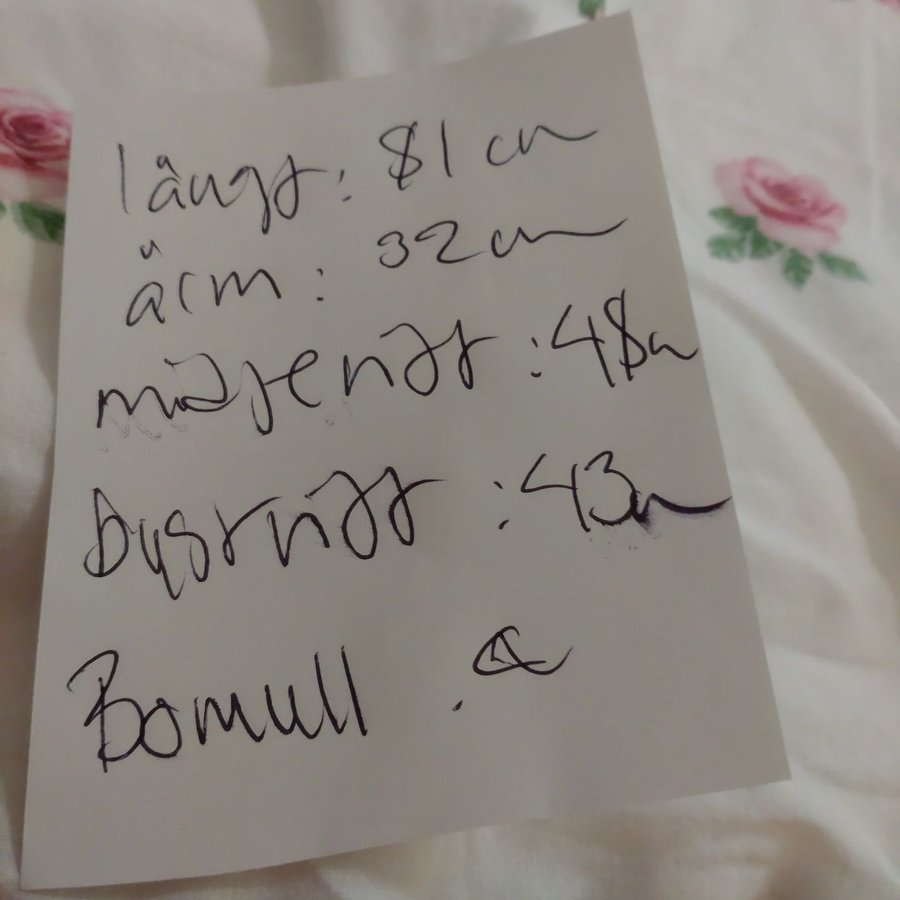 långt: 81 cm
ärm: 32 cm
midjemått: 48cm
bystmått: 43cm
Bomull